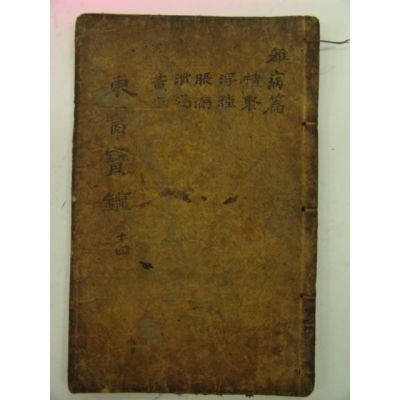 雜病篇
積聚
浮腫
脹滿
消渴
黃疸
東醫寶鑑
十四